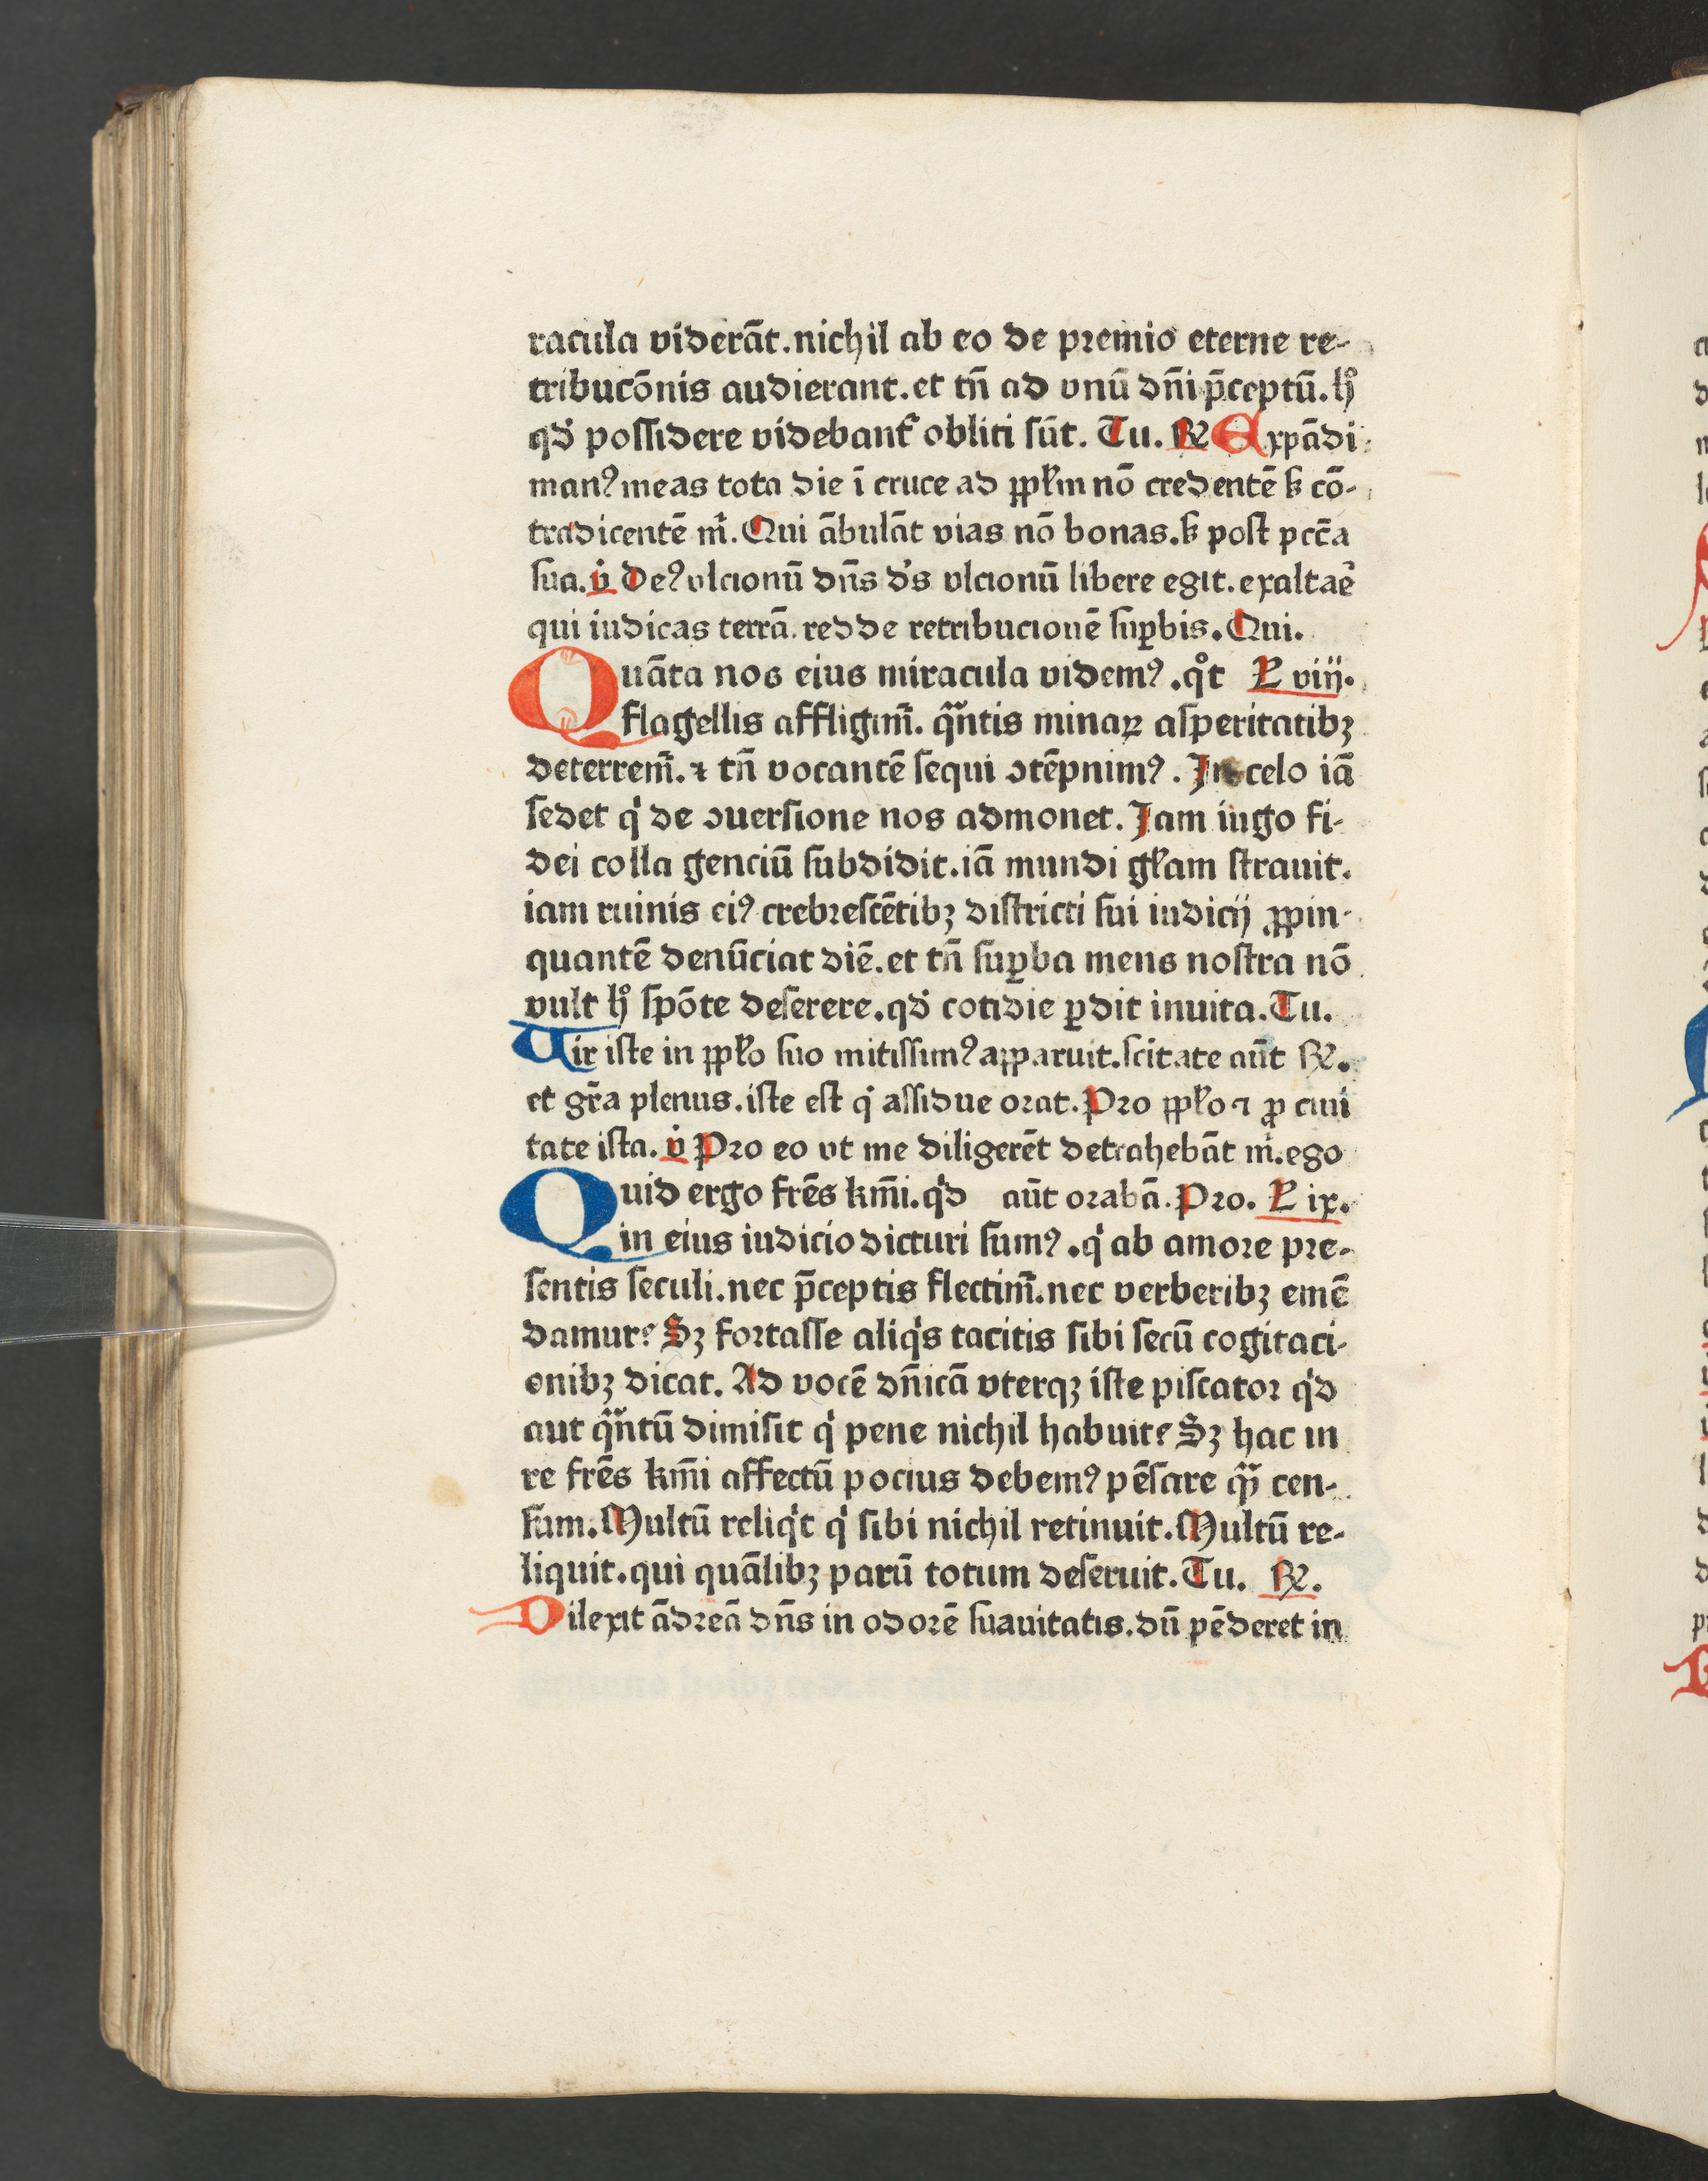 racula viderāt.nichil ab eo de premio eterne re-
tribucōnis audierant.et tn̄ ad vnū dn̄i p̄ceptū.hͦ
qd̕ possidere videbant᷑ obliti sūt. Tu. ℟ Expādi
manꝰ meas tota die ī cruce ad pp̄lm nō credentē ꝫ cō-
tradicentē m̄. Qui ābulāt vias nō bonas.ꝫ post pcc̄a
sua. ℣ Deꝰ vlcionū dn̄s d̕s vlcionū libere egit.exaltae᷑
qui iudicas terrā.redde retribucionē suꝑbis.Qui.
Quāta nos eius miracula videmꝰ.qͦt L viij.
flagellis affligim᷑. qᷓntis minaꝝ asperitatibꝫ
deterrem᷑.⁊ tn̄ vocantē sequi ↄtēpnimꝰ. In celo iā
sedet q̇ de ↄuersione nos admonet. Jam iugo fi-
dei colla genciū subdidit.iā mundi gl̄am strauit.
iam ruinis eiꝰ crebrescētibꝫ districti sui iudicij ꝓpin-
quantē denūciat diē.et tn̄ suꝑba mens nostra nō
vult hͦ spōte deserere.qd̕ cotidie ꝑdit inuita.Tu.
Vir iste in pp̄lo suo mitissimꝰ apparuit.scitate aūt ℟.
et gr̄a plenus.iste est q̇ assidue orat.Pro pp̄lo ⁊ ꝓ ciui
tate ista. ℣ Pro eo vt me diligerēt detrahebāt ṁ.ego
Quid ergo fr̄es km̄i.qͥd aūt orabā.Pro. L ix.
in eius iudicio dicturi sumꝰ.q̇ ab amore pre-
sentis seculi.nec p̄ceptis flectim᷑.nec verberibꝫ emē
damur? Sꝫ fortasse aliqͥs tacitis sibi secū cogitaci-
onibꝫ dicat. Ad vocē dn̄icā vterqꝫ iste piscator qͥd
aut qᷓntū dimisit q̇ pene nichil habuit? Sꝫ hac in
re fr̄es km̄i affectū pocius debemꝰ pēsare qᷓ cen-
sum.Multū reliqͥt q̇ sibi nichil retinuit.Multū re-
liquit.qui quālibꝫ parū totum deseruit.Tu. ℟.
Dilexit ādreā dn̄s in odorē suauitatis.dū pēderet in